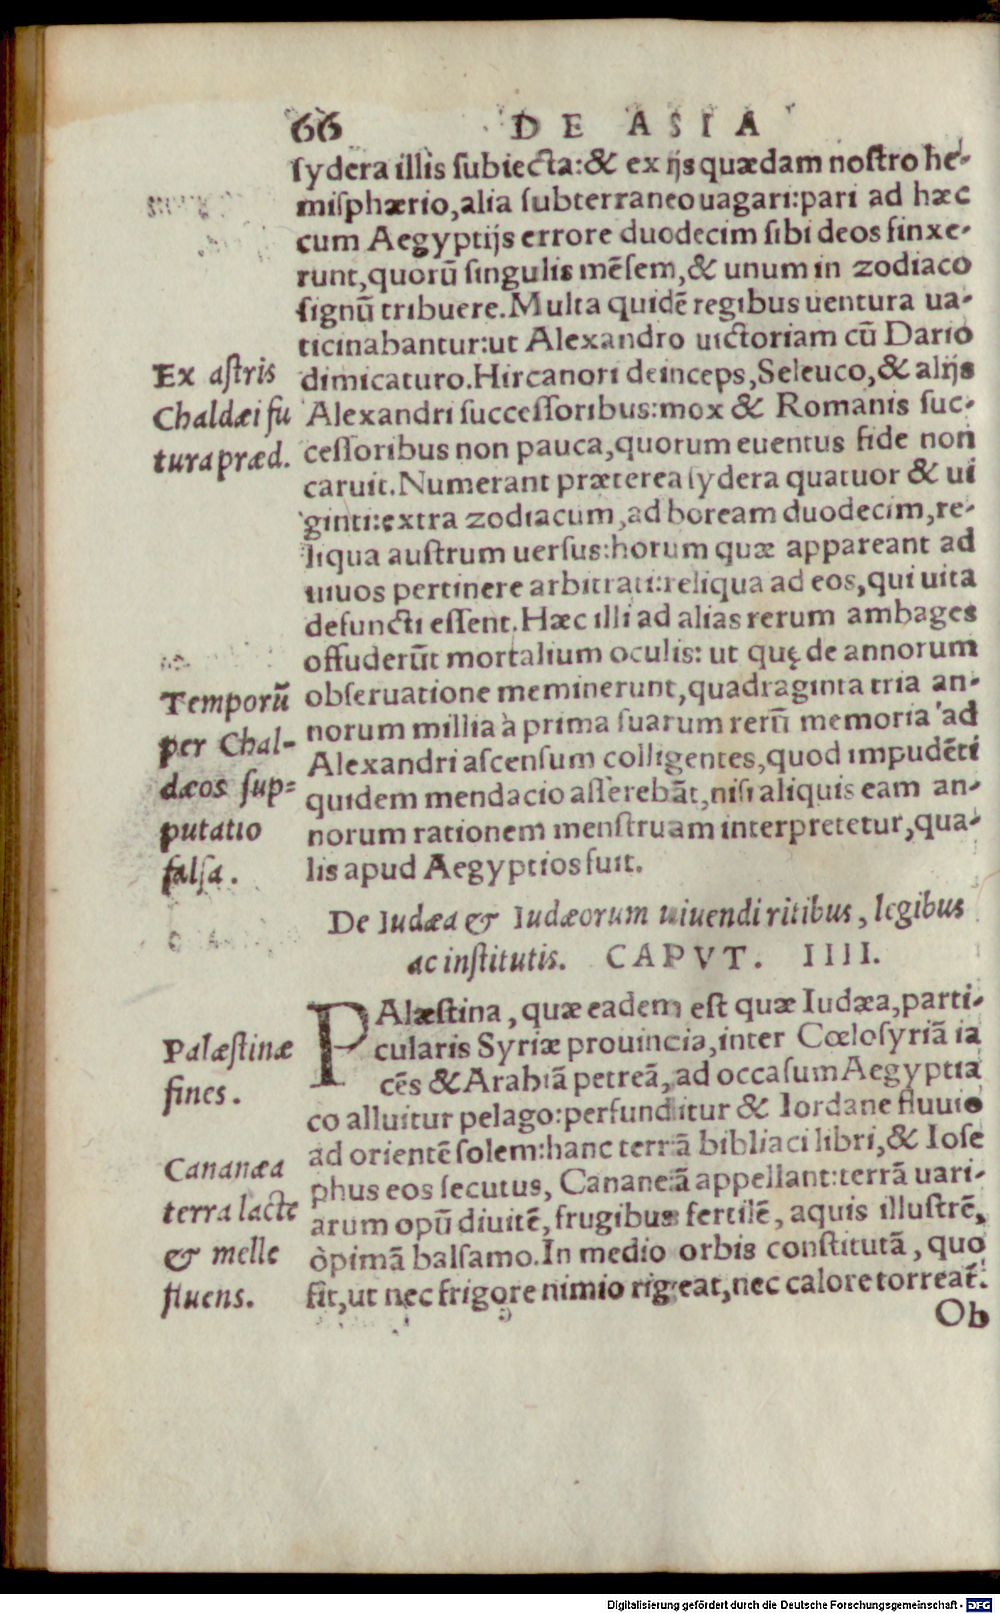 66 DE ASIA
sydera illis subiecta:& ex ijs quædam nostro he-
misphærio,alia subterraneo uagari:pari ad hæc
cum Aegyptijs errore duodecim sibi deos finxe-
runt,quorū singulis mēsem,& unum in zodiaco
signū tribuere.Multa quidē regibus uentura ua-
ticinabantur:ut Alexandro uictoriam cū Dario
dimicaturo.Hircanori deinceps,Seleuco,& alijs
Alexandri successoribus:mox & Romanis suc-
cessoribus non pauca,quorum euentus fide non
caruit.Numerant præterea sydera quatuor & ui
ginti:extra zodiacum,ad boream duodecim,re-
liqua austrum uersus:horum quæ appareant ad
uiuos pertinere arbitrati:reliqua ad eos,qui uita
defuncti essent.Hæc illi ad alias rerum ambages
offuderūt mortalium oculis: ut quę de annorum
obseruatione meminerunt,quadraginta tria an-
norum millia à prima suarum rerū memoria ad
Alexandri ascensum colligentes,quod impudēti
quidem mendacio asserebāt,nisi aliquis eam an-
norum rationem menstruam interpretetur,qua-
lis apud Aegyptios fuit.
Ex astris
Chaldæi fu
tura præd.
Temporū
per Chal-
dæos sup-
putatio
falsa.
De Iudæa & Iudæorum uiuendi ritibus, legibus
ac institutis. CAPVT. IIII.
PAlæstina, quæ eadem est quæ Iudæa,parti-
cularis Syriæ prouincia,inter Cœlosyriā ia
cēs & Arabiā petreā, ad occasum Aegyptia
co alluitur pelago:perfunditur & Iordane fluuio
ad orientē solem:hanc terrā bibliaci libri,& Iose
phus eos secutus, Cananeā appellant:terrā uari-
arum opū diuitē, frugibus fertilē, aquis illustrē,
òpimā balsamo.In medio orbis constitutā, quo
fit,ut nec frigore nimio rigeat,nec calore torreat.
Palæstinæ
fines.
Cananæa
terra lacte
& melle
fluens.
Ob
Digitalisierung gefördert durch die Deutsche Forschungsgemeinschaft - DFG